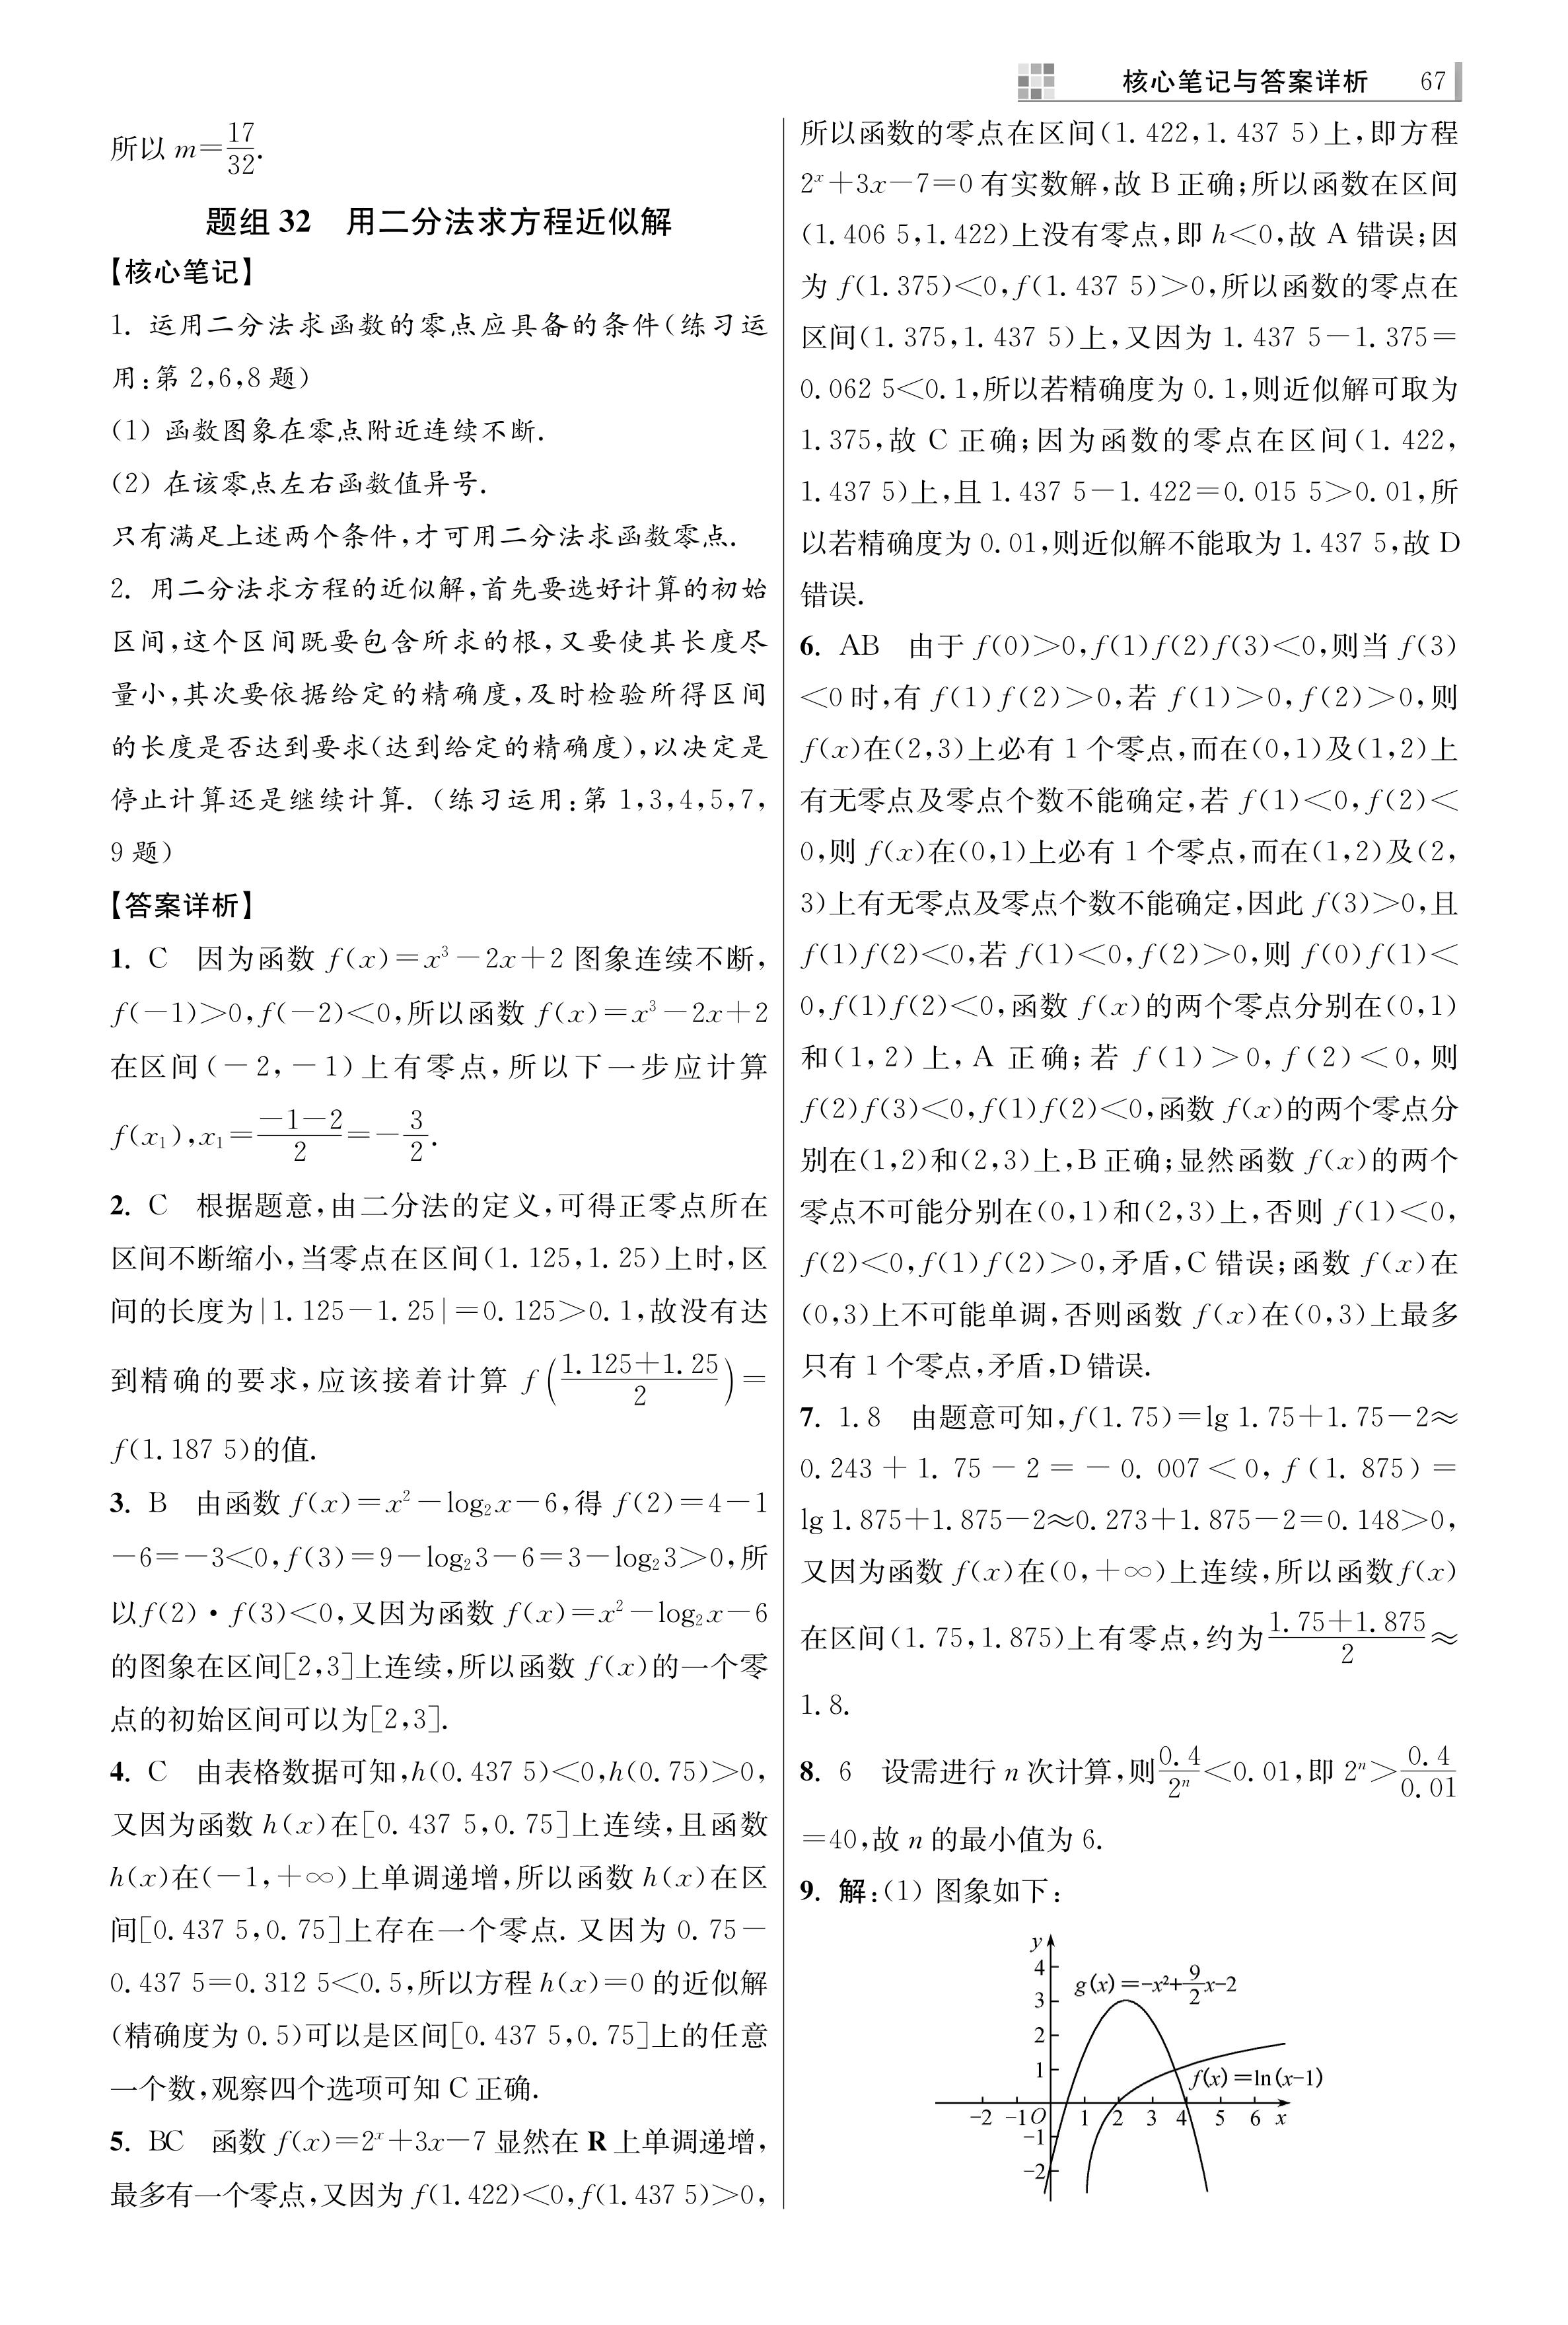 核心笔记与答案详析 67
所以 m=17/32.
题组 32 用二分法求方程近似解
【核心笔记】
1. 运用二分法求函数的零点应具备的条件(练习运
用:第 2,6,8 题)
(1) 函数图象在零点附近连续不断.
(2) 在该零点左右函数值异号.
只有满足上述两个条件,才可用二分法求函数零点.
2. 用二分法求方程的近似解,首先要选好计算的初始
区间,这个区间既要包含所求的根,又要使其长度尽
量小,其次要依据给定的精确度,及时检验所得区间
的长度是否达到要求(达到给定的精确度),以决定是
停止计算还是继续计算. (练习运用:第 1,3,4,5,7,
9 题)
【答案详析】
1. C 因为函数 f(x)=x³-2x+2 图象连续不断,
f(-1)>0,f(-2)<0,所以函数 f(x)=x³-2x+2
在区间(-2,-1)上有零点,所以下一步应计算
f(x₁),x₁=(-1-2)/2=-3/2.
2. C 根据题意,由二分法的定义,可得正零点所在
区间不断缩小,当零点在区间(1.125,1.25)上时,区
间的长度为|1.125-1.25|=0.125>0.1,故没有达
到精确的要求,应该接着计算 f((1.125+1.25)/2)=
f(1.187 5)的值.
3. B 由函数 f(x)=x²-log₂x-6,得 f(2)=4-1
-6=-3<0,f(3)=9-log₂3-6=3-log₂3>0,所
以f(2)·f(3)<0,又因为函数 f(x)=x²-log₂x-6
的图象在区间[2,3]上连续,所以函数 f(x)的一个零
点的初始区间可以为[2,3].
4. C 由表格数据可知,h(0.437 5)<0,h(0.75)>0,
又因为函数 h(x)在[0.437 5,0.75]上连续,且函数
h(x)在(-1,+∞)上单调递增,所以函数 h(x)在区
间[0.437 5,0.75]上存在一个零点. 又因为 0.75-
0.437 5=0.312 5<0.5,所以方程 h(x)=0 的近似解
(精确度为 0.5)可以是区间[0.437 5,0.75]上的任意
一个数,观察四个选项可知 C 正确.
5. BC 函数 f(x)=2ˣ+3x-7 显然在 R 上单调递增,
最多有一个零点,又因为 f(1.422)<0,f(1.437 5)>0,
所以函数的零点在区间(1.422,1.437 5)上,即方程
2ˣ+3x-7=0 有实数解,故 B 正确;所以函数在区间
(1.406 5,1.422)上没有零点,即 h<0,故 A 错误;因
为 f(1.375)<0,f(1.437 5)>0,所以函数的零点在
区间(1.375,1.437 5)上,又因为 1.437 5-1.375=
0.062 5<0.1,所以若精确度为 0.1,则近似解可取为
1.375,故 C 正确;因为函数的零点在区间(1.422,
1.437 5)上,且 1.437 5-1.422=0.015 5>0.01,所
以若精确度为 0.01,则近似解不能取为 1.437 5,故 D
错误.
6. AB 由于 f(0)>0,f(1)f(2)f(3)<0,则当 f(3)
<0 时,有 f(1)f(2)>0,若 f(1)>0,f(2)>0,则
f(x)在(2,3)上必有 1 个零点,而在(0,1)及(1,2)上
有无零点及零点个数不能确定,若 f(1)<0,f(2)<
0,则 f(x)在(0,1)上必有 1 个零点,而在(1,2)及(2,
3)上有无零点及零点个数不能确定,因此 f(3)>0,且
f(1)f(2)<0,若 f(1)<0,f(2)>0,则 f(0)f(1)<
0,f(1)f(2)<0,函数 f(x)的两个零点分别在(0,1)
和(1,2)上,A 正确;若 f(1)>0,f(2)<0,则
f(2)f(3)<0,f(1)f(2)<0,函数 f(x)的两个零点分
别在(1,2)和(2,3)上,B 正确;显然函数 f(x)的两个
零点不可能分别在(0,1)和(2,3)上,否则 f(1)<0,
f(2)<0,f(1)f(2)>0,矛盾,C 错误;函数 f(x)在
(0,3)上不可能单调,否则函数 f(x)在(0,3)上最多
只有 1 个零点,矛盾,D 错误.
7. 1.8 由题意可知,f(1.75)=lg 1.75+1.75-2≈
0.243+1.75-2=-0.007<0,f(1.875)=
lg 1.875+1.875-2≈0.273+1.875-2=0.148>0,
又因为函数 f(x)在(0,+∞)上连续,所以函数f(x)
在区间(1.75,1.875)上有零点,约为(1.75+1.875)/2≈
1.8.
8. 6 设需进行 n 次计算,则0.4/2ⁿ<0.01,即 2ⁿ>0.4/0.01
=40,故 n 的最小值为 6.
9. 解:(1) 图象如下:
y
4
g(x)=-x²+9/2x-2
3
2
1
f(x)=ln(x-1)
-2 -1 O 1 2 3 4 5 6 x
-1
-2